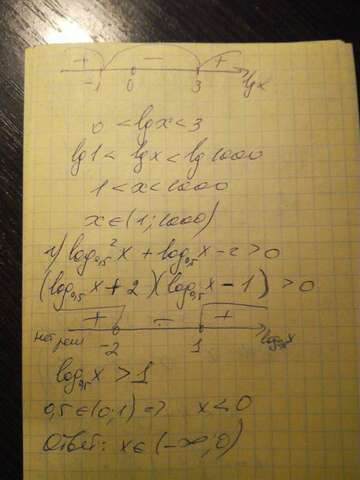 + − +
-1 0 3 lgx
0 < lgx < 3
lg1 < lgx < lg1000
1 < x < 1000
x ∈ (1; 1000)
г) log₀,₅²x + log₀,₅x - 2 > 0
(log₀,₅x + 2)(log₀,₅x - 1) > 0
+ − +
нет реш -2 1 log₀,₅x
log₀,₅x > 1
0,5 ∈ (0; 1) => x < 0
Ответ: x ∈ (-∞; 0)